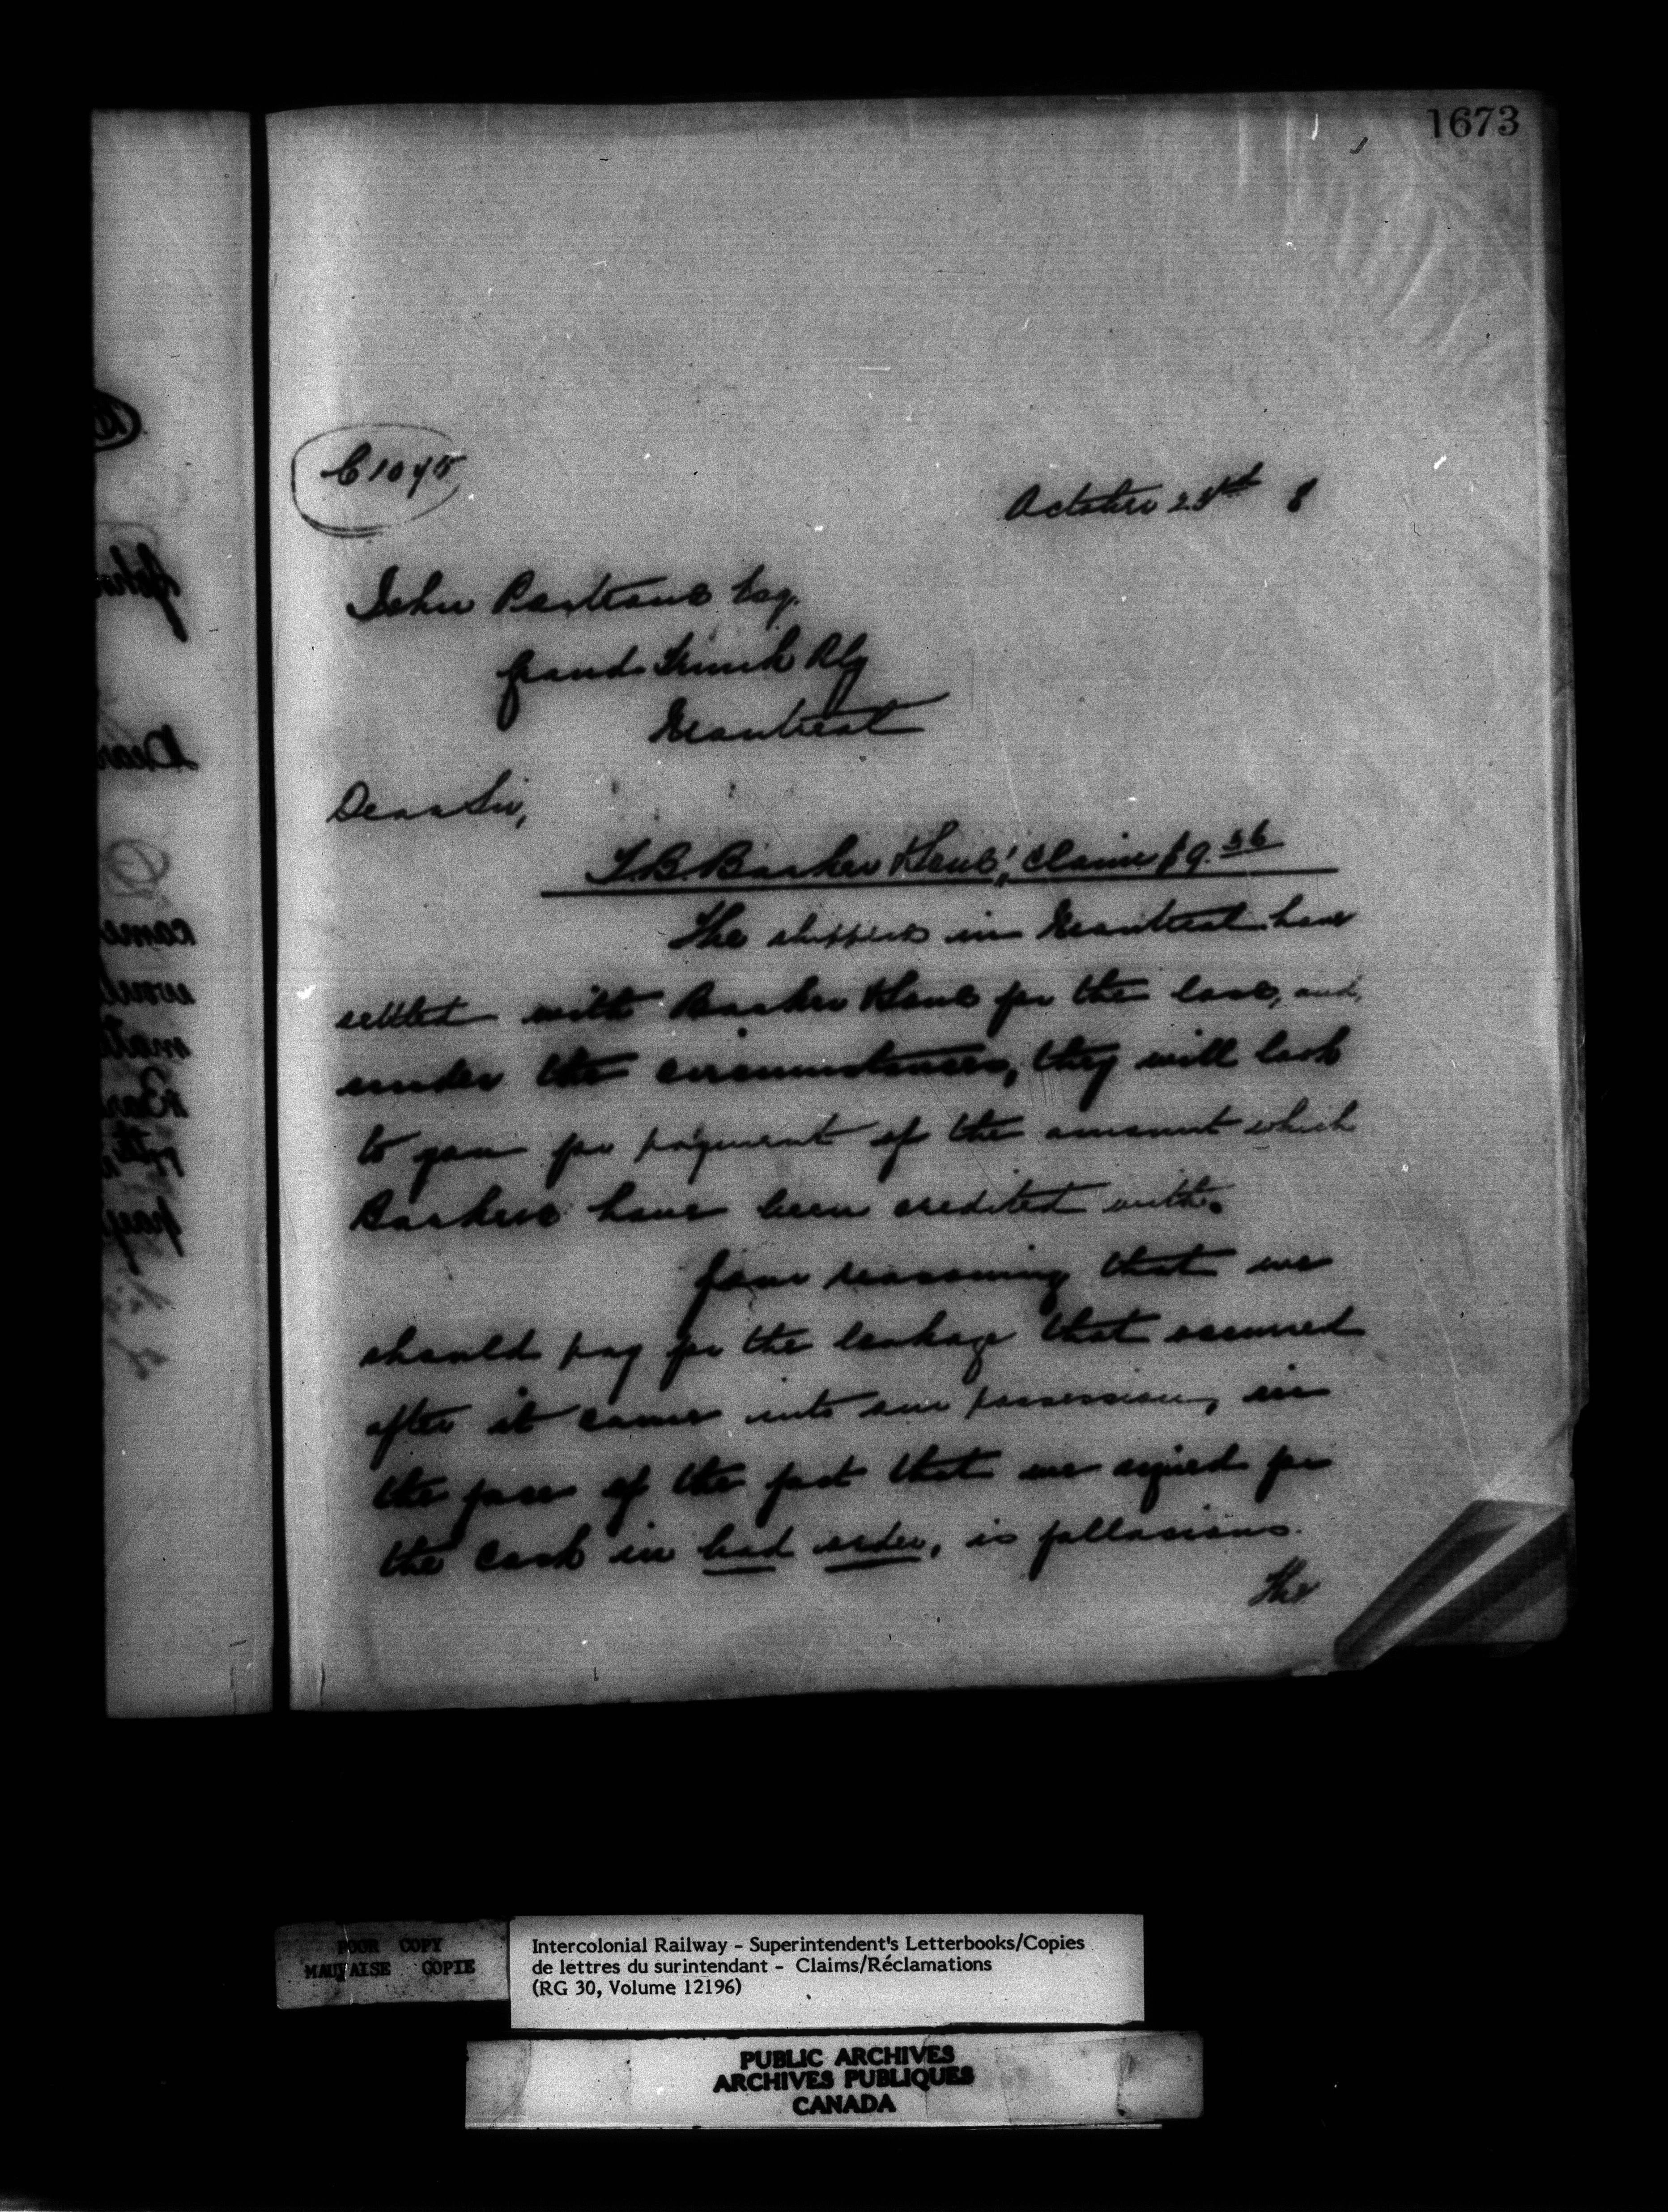 1673
C 1045
October 25th 8
John Porteous Esq.
Grand Trunk Rly
Montreal
Dear Sir,
T.B. Barker & Sons', claim $9.56
The shippers in Montreal have
settled with Barker & Sons for the loss, and,
under the circumstances, they will look
to you for payment of the amount which
Barkers have been credited with.
Your reasoning that we
should pay for the leakage that occurred
after it came into our possession, in
the face of the fact that we signed for
the cask in bad order, is fallacious.
The
John
Dear
came
POOR COPY
MAUVAISE COPIE
Intercolonial Railway - Superintendent's Letterbooks/Copies
de lettres du surintendant - Claims/Réclamations
(RG 30, Volume 12196)
PUBLIC ARCHIVES
ARCHIVES PUBLIQUES
CANADA